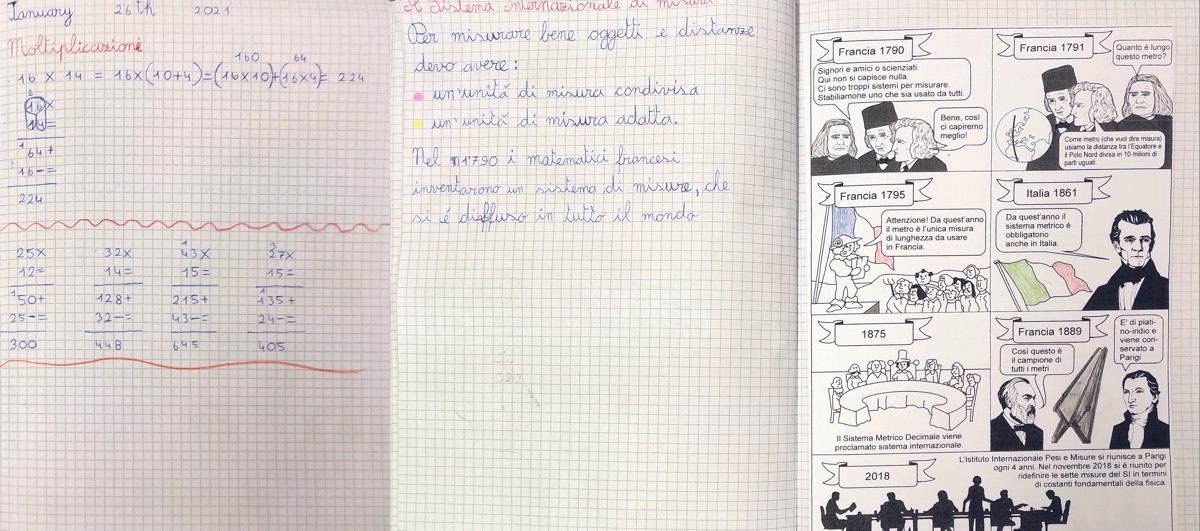 January 26th 2021
Moltiplicazioni
160 64
16 x 14 = 16x(10+4)=(16x10)+(16x4)= 224
2
16x
14=
164+
16-=
224
25x 32x 143x 327x
12= 14= 15= 15=
150+ 128+ 215+ 135+
25-= 32-= 43-= 24-=
300 448 645 405
Il Sistema Internazionale di misura
Per misurare bene oggetti e distanze
devo avere:
un'unità di misura condivisa
un'unità di misura adatta.
Nel 1790 i matematici francesi
inventarono un sistema di misure, che
si é diffuso in tutto il mondo
Francia 1790
Signori e amici o scienziati.
Qui non si capisce nulla.
Ci sono troppi sistemi per misurare.
Stabiliamone uno che sia usato da tutti.
Bene, così
ci capiremo
meglio!
Francia 1791
Quanto è lungo
questo metro?
Come metro (che vuol dire misura)
usiamo la distanza tra l'Equatore e
il Polo Nord divisa in 10 milioni di
parti uguali.
Francia 1795
Attenzione! Da quest'anno
il metro è l'unica misura
di lunghezza da usare
in Francia.
Italia 1861
Da quest'anno il
sistema metrico è
obbligatorio
anche in Italia.
1875
Il Sistema Metrico Decimale viene
proclamato sistema internazionale.
Francia 1889
Così questo è
il campione di
tutti i metri
E' di plati-
no-iridio e
viene con-
servato a
Parigi
2018
L'Istituto Internazionale Pesi e Misure si riunisce a Parigi
ogni 4 anni. Nel novembre 2018 si è riunito per
ridefinire le sette misure del SI in termini
di costanti fondamentali della fisica.